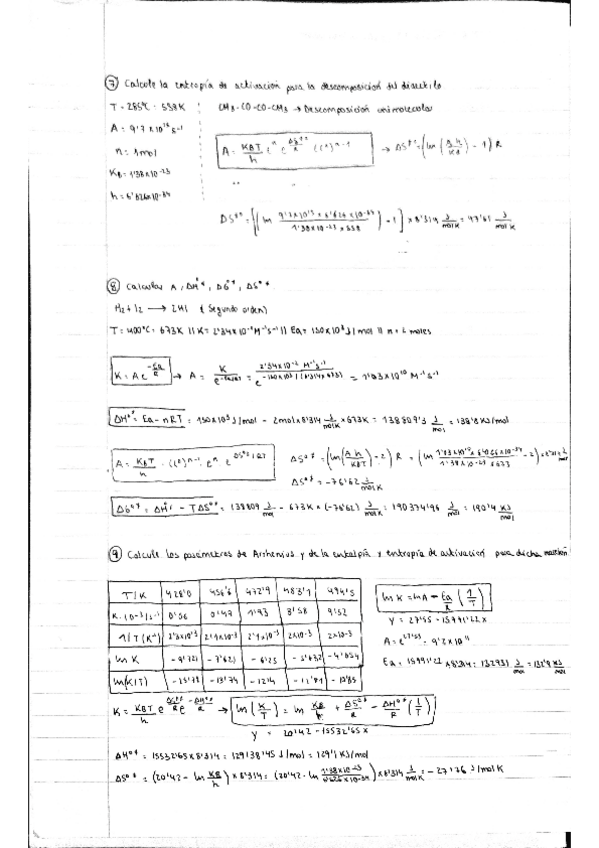 ⑦ Calcule la entropía de activación para la descomposición del diacetilo
T = 285ºC = 558K CH3-CO-CO-CH3 → Descomposición unimolecular
A = 9'7 x 10
n = 1mol A = KBT/h e^n e^ΔS/R (C°)^n-1 → ΔS°‡ = (ln (A h / KBT) - 1) R
KB = 1'38 x 10^-23
h = 6'626x10^-34
x 8'314 J/mol K = 47'61 J/mol K
⑧ Calcular A, ΔH°‡, ΔG°‡, ΔS°‡
H2 + I2 → 2HI (Segundo orden)
T = 400ºC = 673K || K = 2'34x10^-2 M^-1 s^-1 || Ea = 150x10^3 J/mol || n = 2 moles
K = A e^-Ea/RT → A = K / e^-Ea/RT = 2'34x10^-2 M^-1 s^-1 / e^-150x10^3/(8'314x673) = 1'03x10^10 M^-1 s^-1
ΔH°‡ = Ea - nRT = 150x10^3 J/mol - 2mol x 8'314 J/mol K x 673K = 138809'3 J/mol = 138'8 KJ/mol
A = KBT/h · (C°)^n-1 · e^n · ΔS°‡ = (ln (A h / KBT) - 2) R =
ΔS°‡ = -76'62 J/mol K
ΔG°‡ = ΔH°‡ - TΔS°‡ = 138809 J/mol - 673K x (-76'62) J/mol K = 190374'96 J/mol = 190'4 KJ/mol
⑨ Calcule los parámetros de Arrhenius y de la entalpía y entropía de activación para dicha reacción
T/K 428'0 456'6 472'9 483'7 494'5
K (10^-3)/s^-1 0'06 0'47 1'93 3'58 9'52
1/T (K^-1) 2'3x10^-3 2'1x10^-3 2'1x10^-3 2x10^-3 2x10^-3
ln K -9'721 -7'621 -6'25
ln(K/T) -15'78 -13'74 -12'4
ln K = ln A - Ea/R (1/T)
y = 27'55 - 15991'22x
A = e^27'55 = 9'2x10^11
Ea = 15991'22 x 8'314 = 132951 J/mol = 132'9 KJ/mol
K = KBT/h e^ΔS°‡/R e^-ΔH°‡/R → ln (K/T) = ln KB/h + ΔS°‡/R - ΔH°‡/R (1/T)
y = 20'42 - 15532'65x
ΔH°‡ = 15532'65x8'314 = 129138'45 J/mol = 129'1 KJ/mol
ΔS°‡ = (20'42 - ln KB/h) x 8'314 = (20'42 - ln 1'38x10^-23 / 6'626x10^-34) x 8'314 J/mol K = -27'76 J/mol K